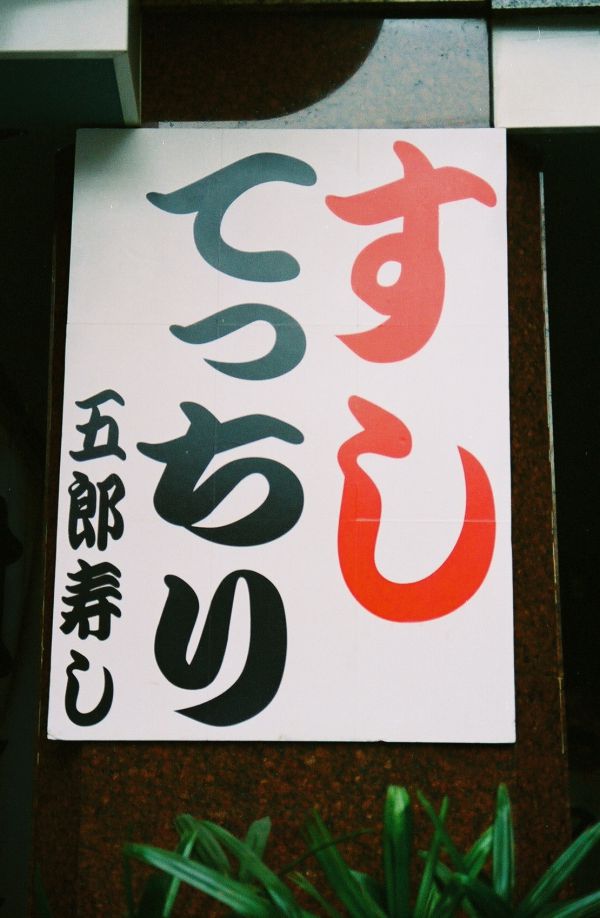 すし
てっちり
五郎寿し